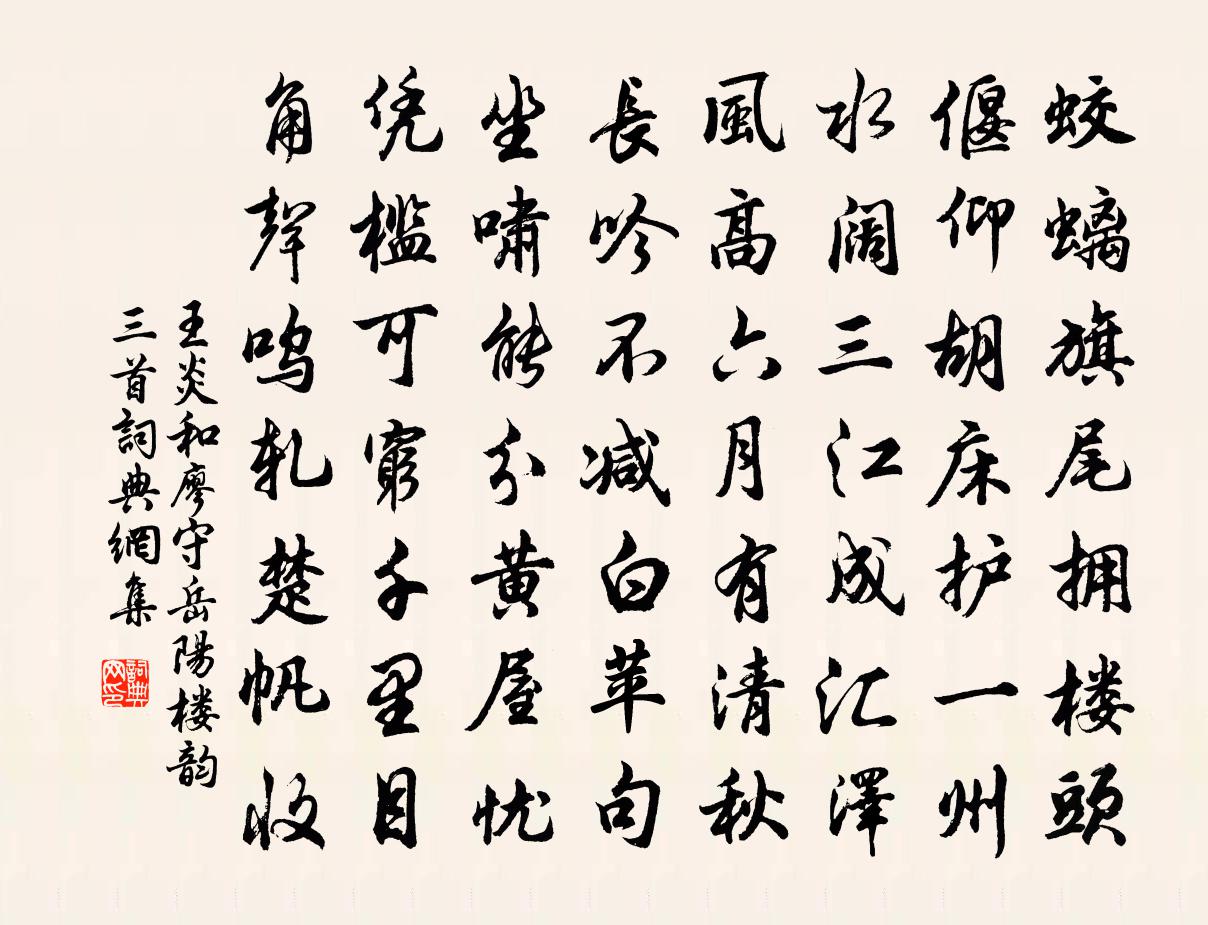 蛟螭旗尾拥楼头
偃仰胡床护一州
水阔三江成汇澤
風高六月有清秋
長吟不减白苹句
坐嘯能分黄屋忧
凭槛可窮千里目
角聲鸣轧楚帆收
王炎和廖守岳陽楼韵
三首詞典網集
詞典网印